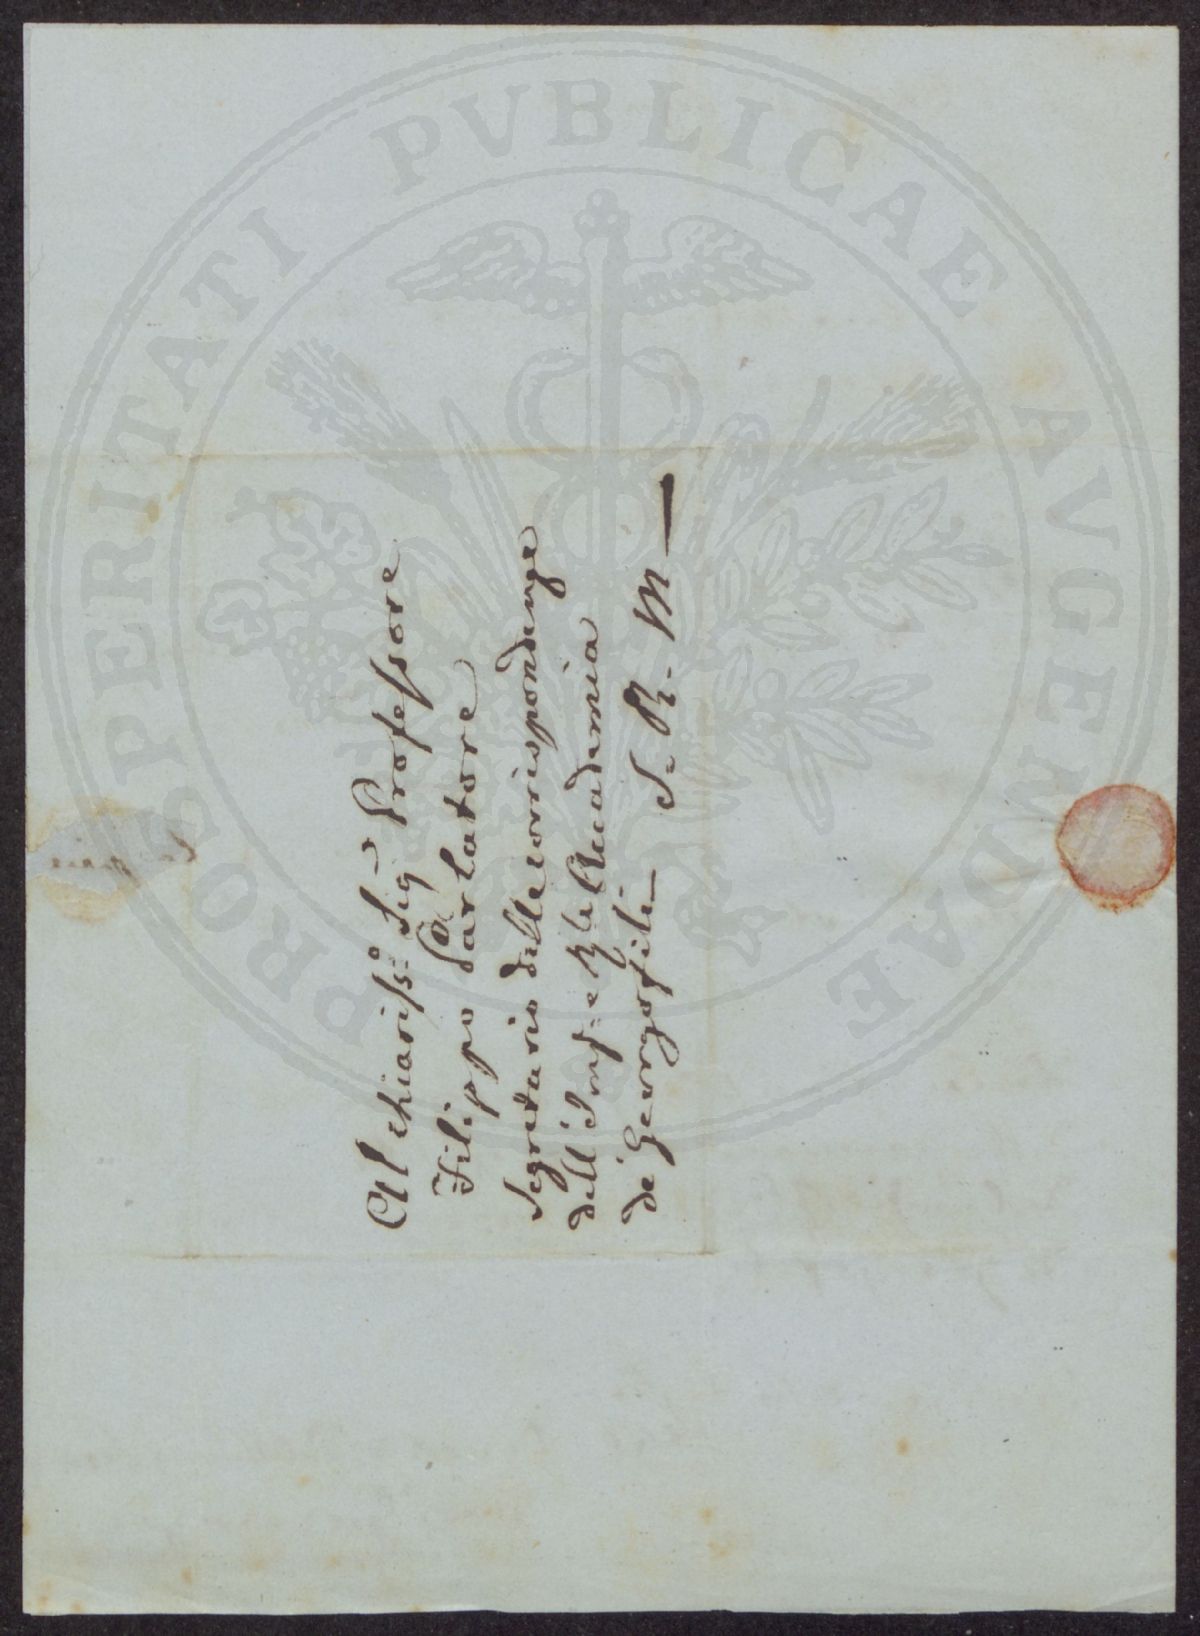 Al chiariss:º Sigʳ Professore
Filippo Parlatore
Segretario delle corrispondenze
dell'Imp: e R:le Accademia
de' Georgofili — S. R. M —
PROSPERITATI PVBLICAE AVGENDAE